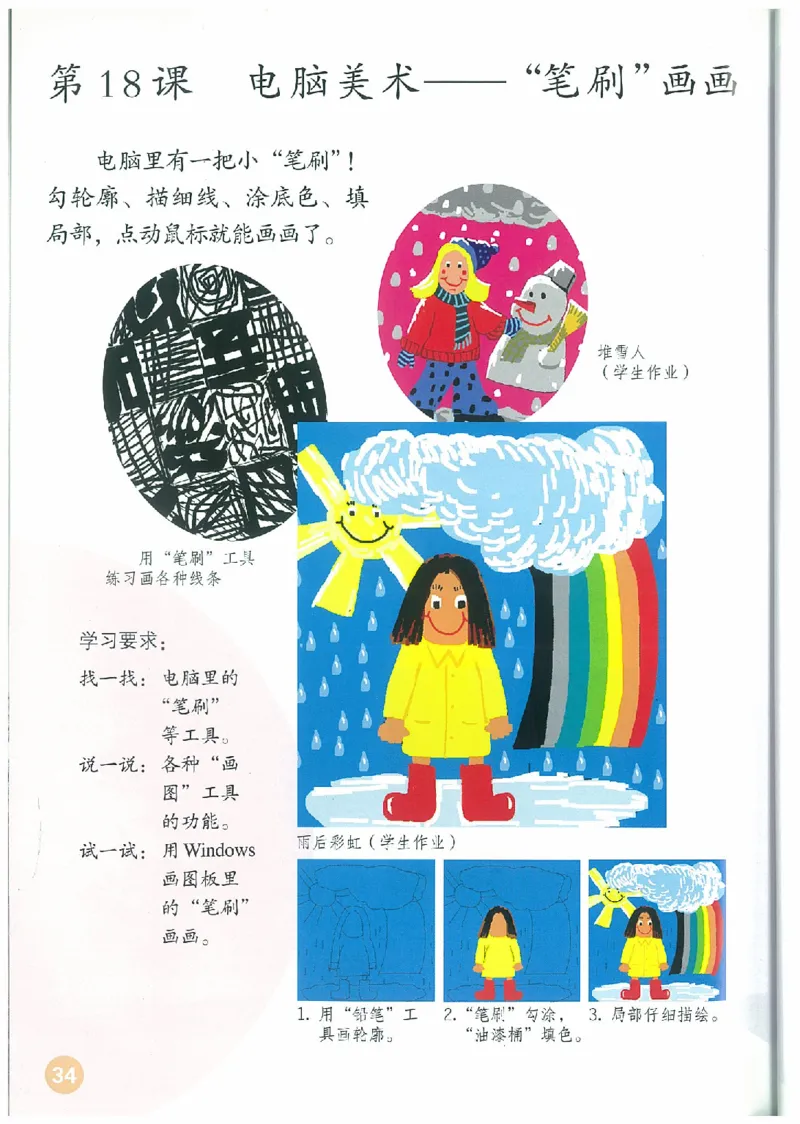 第18课 电脑美术——“笔刷”画画
电脑里有一把小“笔刷”!
勾轮廓、描细线、涂底色、填
局部，点动鼠标就能画画了。
堆雪人
(学生作业)
用“笔刷”工具
练习画各种线条
学习要求:
找一找: 电脑里的
“笔刷”
等工具。
说一说: 各种“画
图”工具
的功能。
试一试: 用Windows
画图板里
的“笔刷”
画画。
雨后彩虹(学生作业)
1. 用“铅笔”工
具画轮廓。
2.“笔刷”勾涂,
“油漆桶”填色。
3. 局部仔细描绘。
34